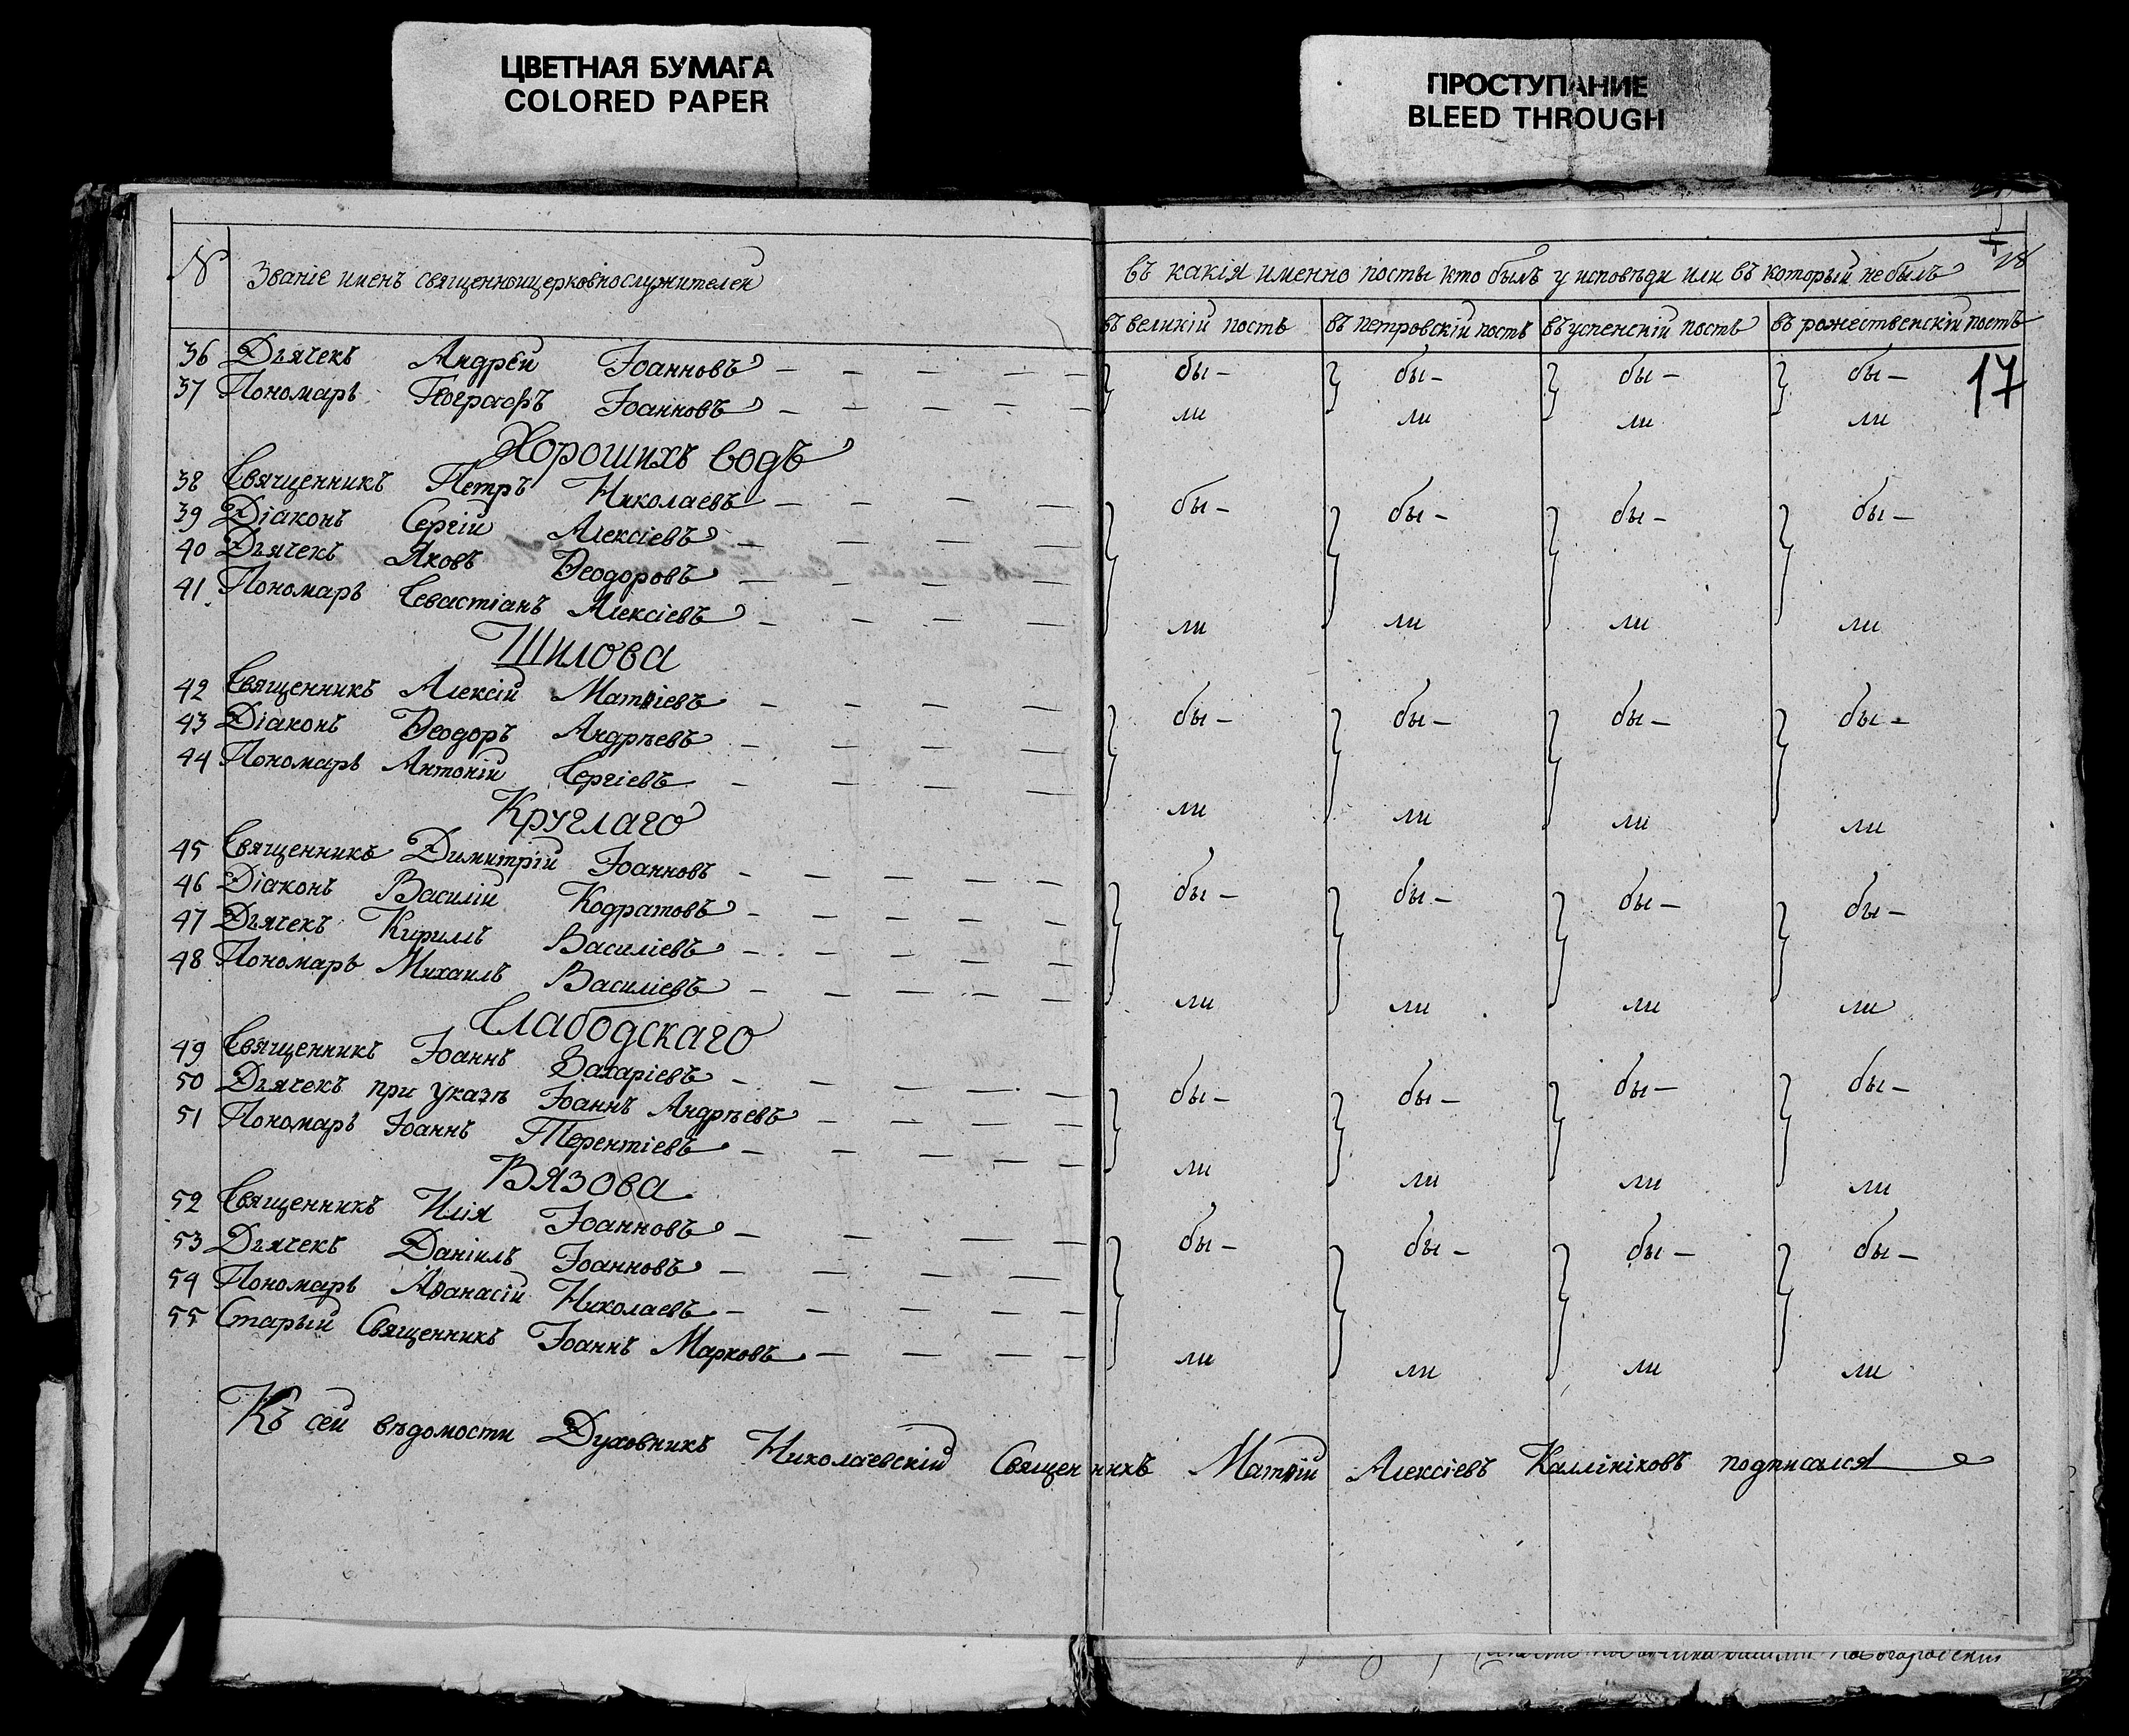 ЦВЕТНАЯ БУМАГА
COLORED PAPER
ПРОСТУПАНИЕ
BLEED THROUGH
№ Званіе имень священноицерковнослужителей
въ какія именно посты кто былъ у исповѣди или въ который небылъ
въ великій постъ въ петровскій постъ въ успенскій постъ въ рожественскій постъ
17
36 Дьячекъ Андрей Іоанновъ — бы — бы — бы — бы —
37 Пономарь Іоанновъ — ли ли ли ли
Хорошихъ водъ
38 Священникъ Петръ Николаевъ — бы — бы — бы — бы —
39 Діаконъ Сергій Алексіевъ
40 Дьячекъ Яковъ Ѳеодоровъ
41 Пономарь Севастіанъ Алексіевъ — ли ли ли ли
Шилова
42 Священникъ Алексій Матѳіевъ — бы — бы — бы — бы —
43 Діаконъ Ѳеодоръ Андрѣевъ
44 Пономарь Антоній Сергіевъ — ли ли ли ли
Круглаго
45 Священникъ Димитрій Іоанновъ — бы — бы — бы — бы —
46 Діаконъ Василій Кодратовъ
47 Дьячекъ Кириллъ Василіевъ
48 Пономарь Михаилъ Василіевъ — ли ли ли ли
Слабодскаго
49 Священникъ Іоаннъ Захаріевъ — бы — бы — бы — бы —
50 Дьячекъ при указѣ Іоаннъ Андрѣевъ
51 Пономарь Іоаннъ Терентіевъ — ли ли ли ли
Вязова
52 Священникъ Илія Іоанновъ — бы — бы — бы — бы —
53 Дьячекъ Даніилъ Іоанновъ
54 Пономарь Аѳанасій Николаевъ
55 Старый Священникъ Іоаннъ Марковъ — ли ли ли ли
Къ сей вѣдомости Духовникъ Николаевскій Священникъ Матѳій Алексіевъ Каллініковъ подписался